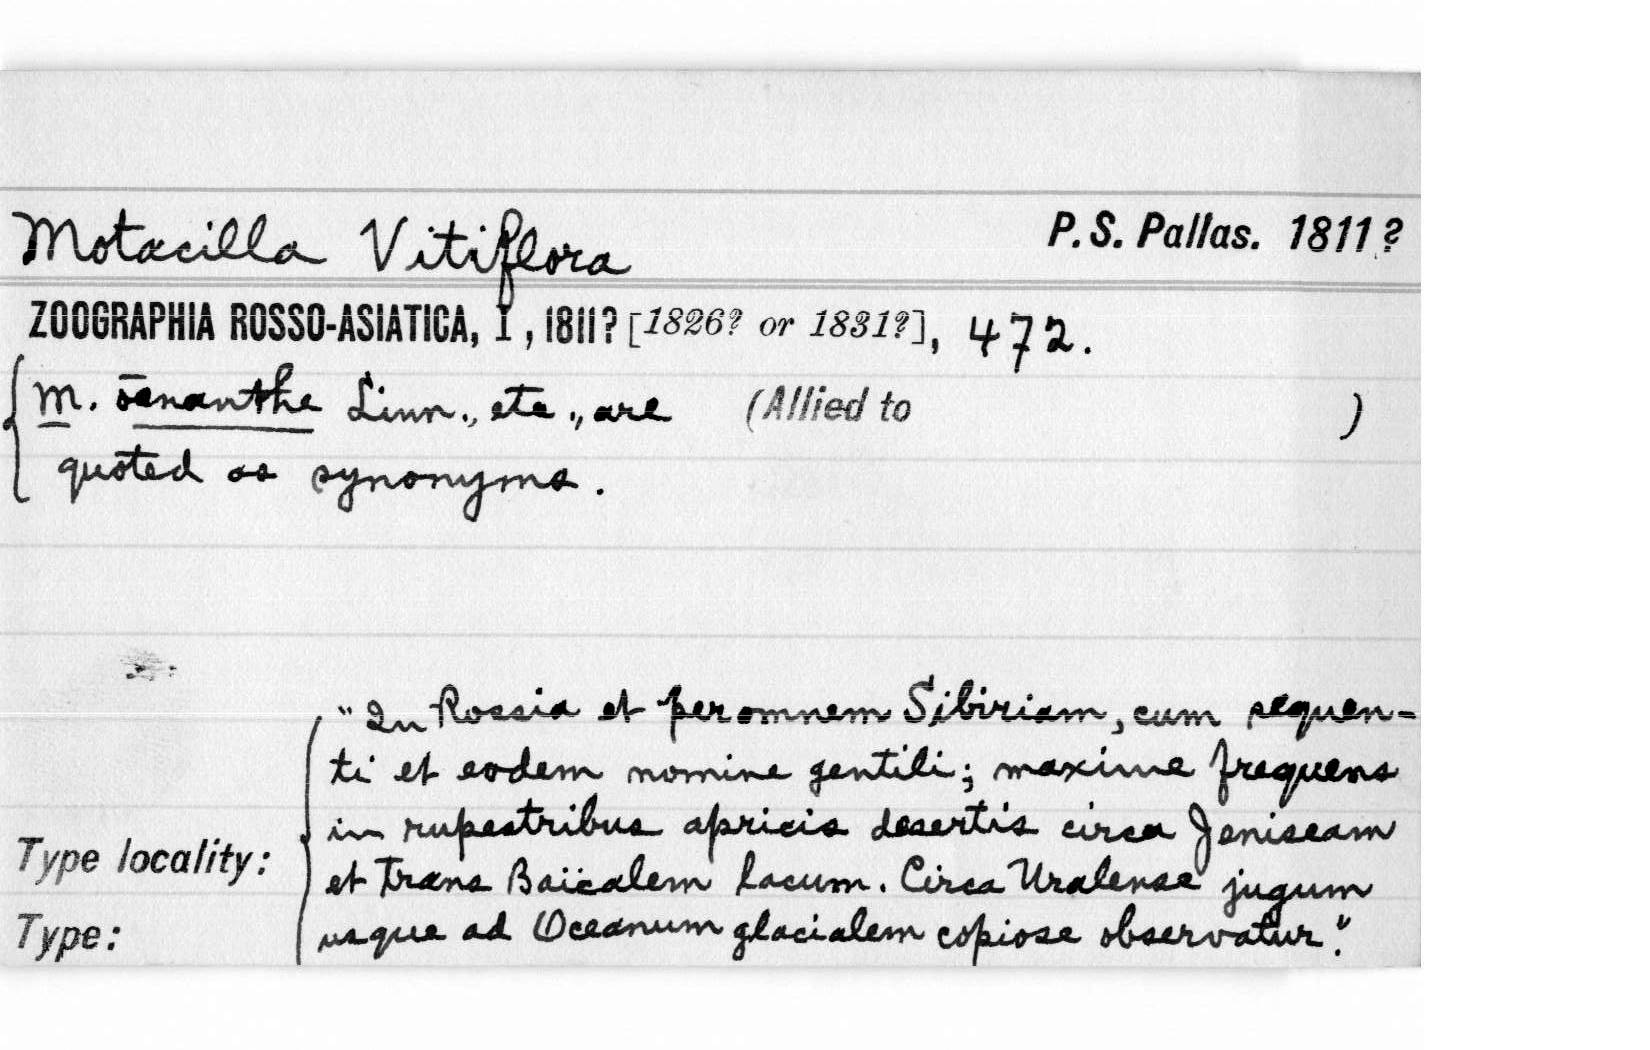 Motacilla Vitiflora P. S. Pallas. 1811?
ZOOGRAPHIA ROSSO-ASIATICA, I, 1811? [1826? or 1831?], 472.
M. oenanthe Linn., etc., are (Allied to )
quoted as synonyms.
"In Rossia et per omnem Sibiriam, cum sequen-
ti et eodem nomine gentili; maxime frequens
in rupestribus apricis desertis circa Jeniseam
Type locality: et trans Baïcalem lacum. Circa Uralense jugum
Type: usque ad Oceanum glacialem copiose observatur."